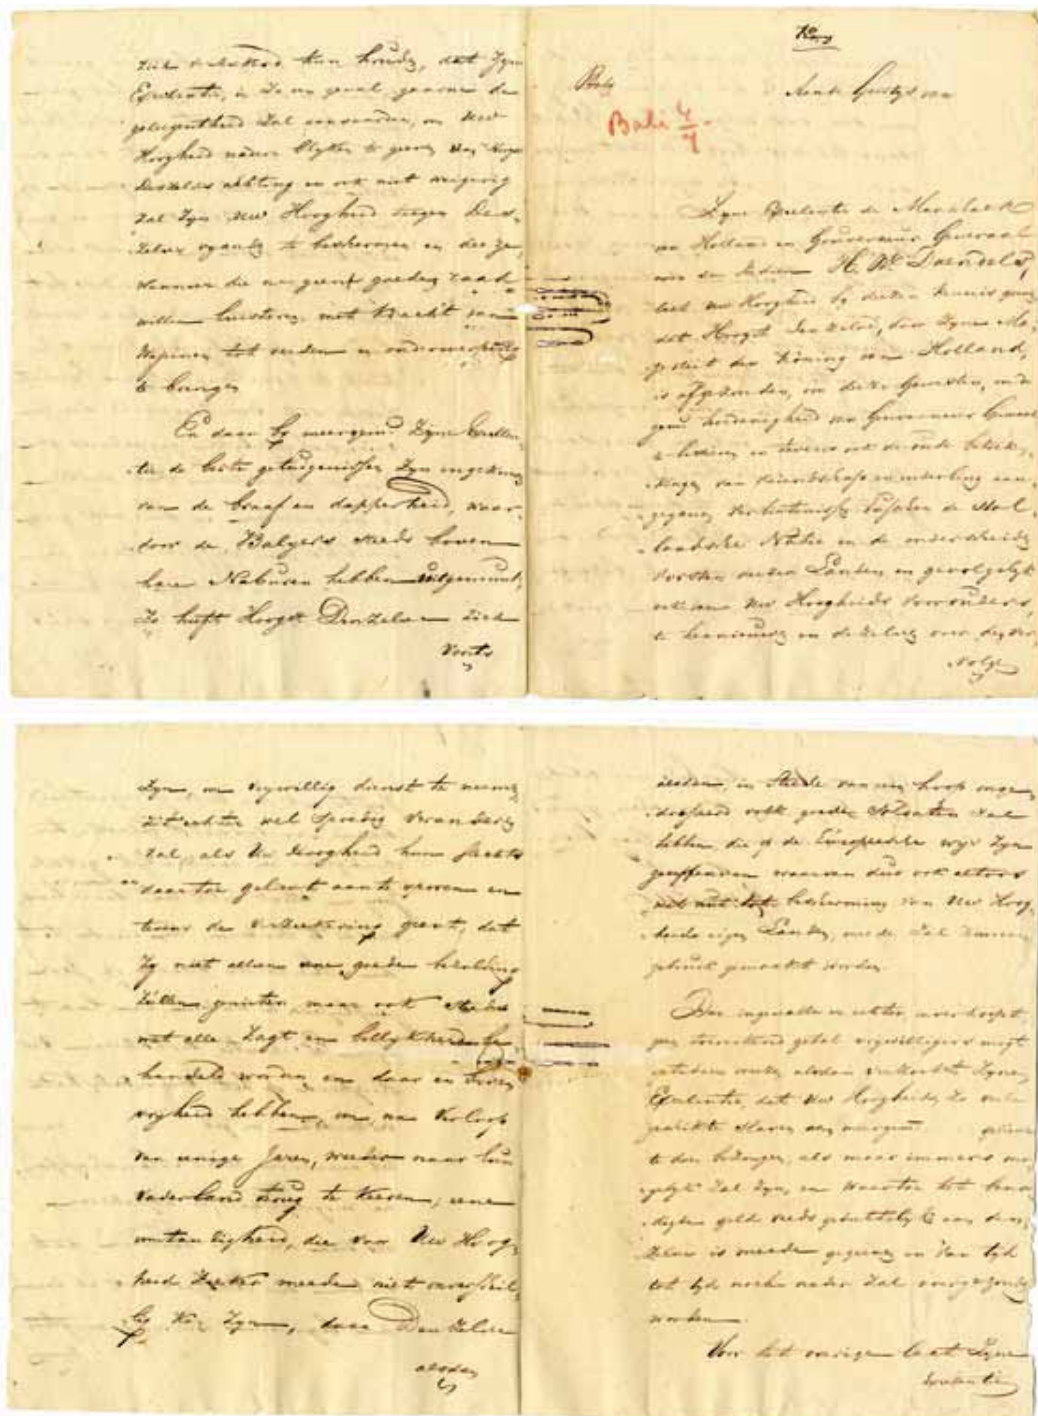 kan houden, dat Zyne
Excellentie, in zo een geval, gaarne de
gelegentheid zal aanvaarden, om Uw
Hoogheid nader blyken te geven van Hoogst
Deszelvs achting en ook niet weigerig
zal zyn Uw Hoogheid tegen Des-
zelvs vyanden te beschermen en die ge-
willen luisteren met kracht van
Wapenen tot reeden en onderwerping
te brengen
En daar by meergem. Zyne Excellen-
tie de beste getuigenissen zyn ingekomen
van de braaf en dapperheid, waar-
door de Balyers steeds boven
hare Naburen hebben uitgemunt,
Zo heeft Hoogst Denzelve zich
voorts
Bali
Aan de Gustys van
Bali 4/7
Zyne Excellentie de Marschalk
van Holland en Gouverneur Generaal
van Indien H. W. Daendels,
laat Uw Hoogheid by deezen kennis geven
dat Hoogst Denzelve, door Zyne Ma-
jesteit den Koning van Holland,
is afgezonden, om deze Gewesten, in de
gem. hoedanigheid van Gouverneur Generaal
te bestieren en tevens ook de oude betrek-
kingen van vriendschap en onderling aan-
gegane Verbintenissen tusschen de Hol-
landsche Natie en de onderscheide
Vorsten dezer Landen en gevolgelyk
ook van Uw Hoogheids Voorouders,
te hernieuwen en dezelve voor den ver-
volge
Zyn, om vrywillig dienst te neemen
dit echter wel spoedig veranderen
zal, als Uw Hoogheid hun slechts
daar toe gelieft aan te spooren en
tevens de verzeekering geevt, dat
zy niet alleen eene goede bezolding
zullen genieten, maar ook steeds
met alle zagt en billykheid be-
handeld worden, en daar en boven
vryheid hebben, om, na verloop
van eenige Jaren, weeder naar hun
Vaderland terug te keeren; eene
omstandigheid, die voor Uw Hoog-
heid zeeker meede niet onverschil-
lig kan zyn, daar Denzelve
alsdan
alsdan, in steede van een hoop onge-
volk goede Soldaten zal
hebben, die op de Europeesche wyze zyn
geoeffend en waarvan dus ook altoos
bescherming van Uw Hoog-
heids eigen Landen, meede zal kunnen
gebruik gemaakt worden
Dan ingevalle er echter, onverhoopt,
geen toereikend getal vrywilligers mogt
worden alsdan verzoekt Zyne
Excellentie, dat Uw Hoogheid, zo veele
geschikte slaven aan meergem. gelieve
te doen bezorgen, als maar immers mo-
gelyk zal zyn, en waartoe het beno-
digde geld reeds gedeeltelyk aan den-
zelven is meede gegeven en van tyd
tot tyd noch nader zal overgezonden
worden
Voor het overige laat Zyne
Excellentie